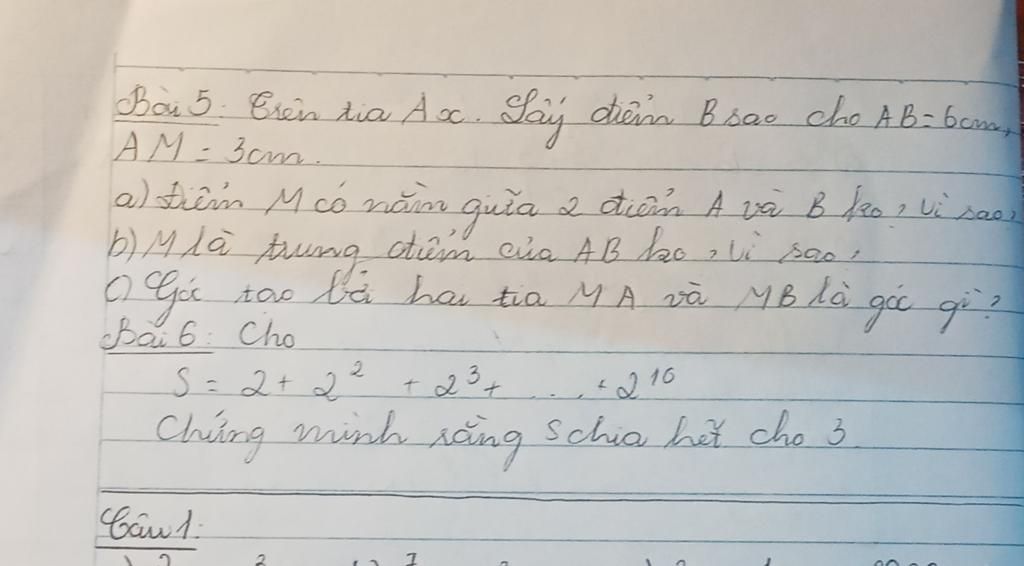 Bài 5. Trên tia Ax. Lấy điểm B sao cho AB = 6cm,
AM = 3cm.
a) Điểm M có nằm giữa 2 điểm A và B ko, vì sao,
b) M là trung điểm của AB ko, vì sao,
c) Góc tạo bởi hai tia MA và MB là góc gì?
Bài 6: Cho
S = 2 + 2² + 2³ + .... + 2¹⁰
Chứng minh rằng S chia hết cho 3
Câu 1: